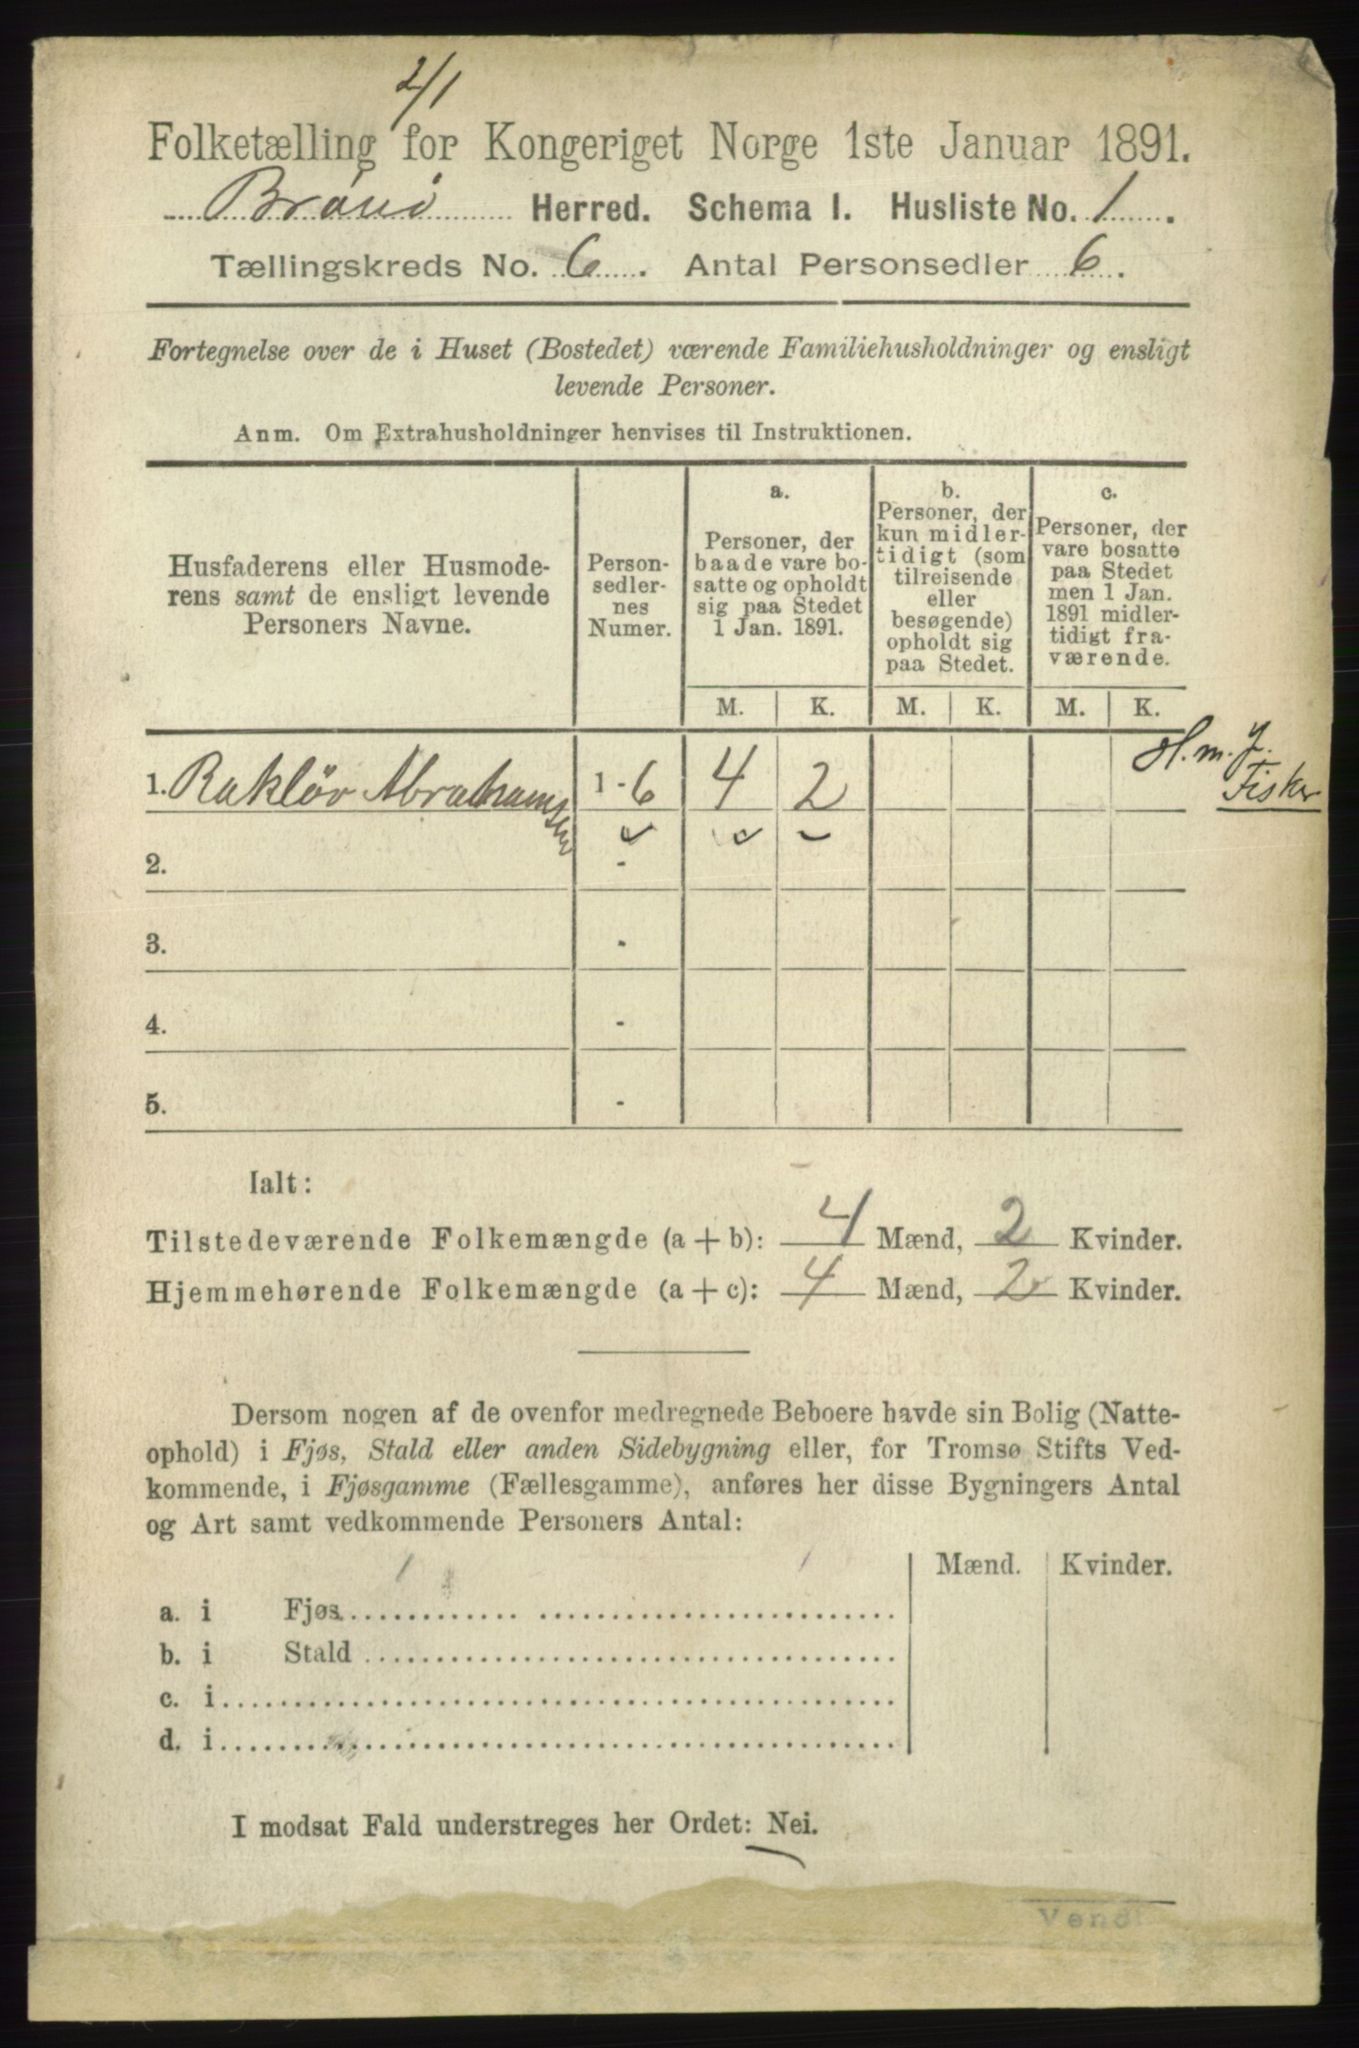 2/1
Folketælling for Kongeriget Norge 1ste Januar 1891.
Brönö Herred. Schema I. Husliste No. 1.
Tællingskreds No. 6. Antal Personsedler 6.
Fortegnelse over de i Huset (Bostedet) værende Familiehusholdninger og ensligt
levende Personer.
Anm. Om Extrahusholdninger henvises til Instruktionen.
Husfaderens eller Husmode-
rens samt de ensligt levende
Personers Navne.
Person-
sedler-
nes
Numer.
a.
Personer, der
baade vare bo-
satte og opholdt
sig paa Stedet
1 Jan. 1891.
b.
Personer, der
kun midler-
tidigt (som
tilreisende
eller
besøgende)
opholdt sig
paa Stedet.
c.
Personer, der
vare bosatte
paa Stedet
men 1 Jan.
1891 midler-
tidigt fra-
værende.
M. K. M. K. M. K.
1. Rakløv Abrahamsen 1-6 4 2
H. m. J.
Fisker
2. -
3. -
4. -
5. -
Ialt:
Tilstedeværende Folkemængde (a + b): 4 Mænd, 2 Kvinder.
Hjemmehørende Folkemængde (a + c): 4 Mænd, 2 Kvinder.
Dersom nogen af de ovenfor medregnede Beboere havde sin Bolig (Natte-
ophold) i Fjøs, Stald eller anden Sidebygning eller, for Tromsø Stifts Ved-
kommende, i Fjøsgamme (Fællesgamme), anføres her disse Bygningers Antal
og Art samt vedkommende Personers Antal:
Mænd. Kvinder.
a. i Fjøs
b. i Stald
c. i
d. i
I modsat Fald understreges her Ordet: Nei.
Vend!